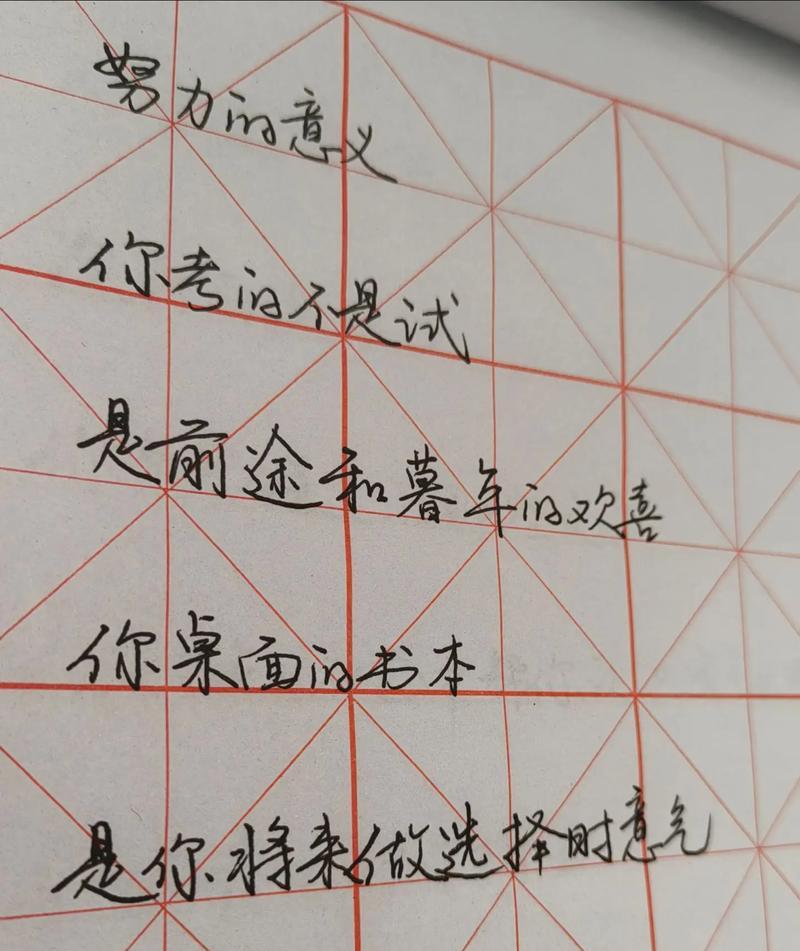 努力的意义
你考的不是试
是前途和暮年的欢喜
你桌面的书本
是你将来做选择时意气